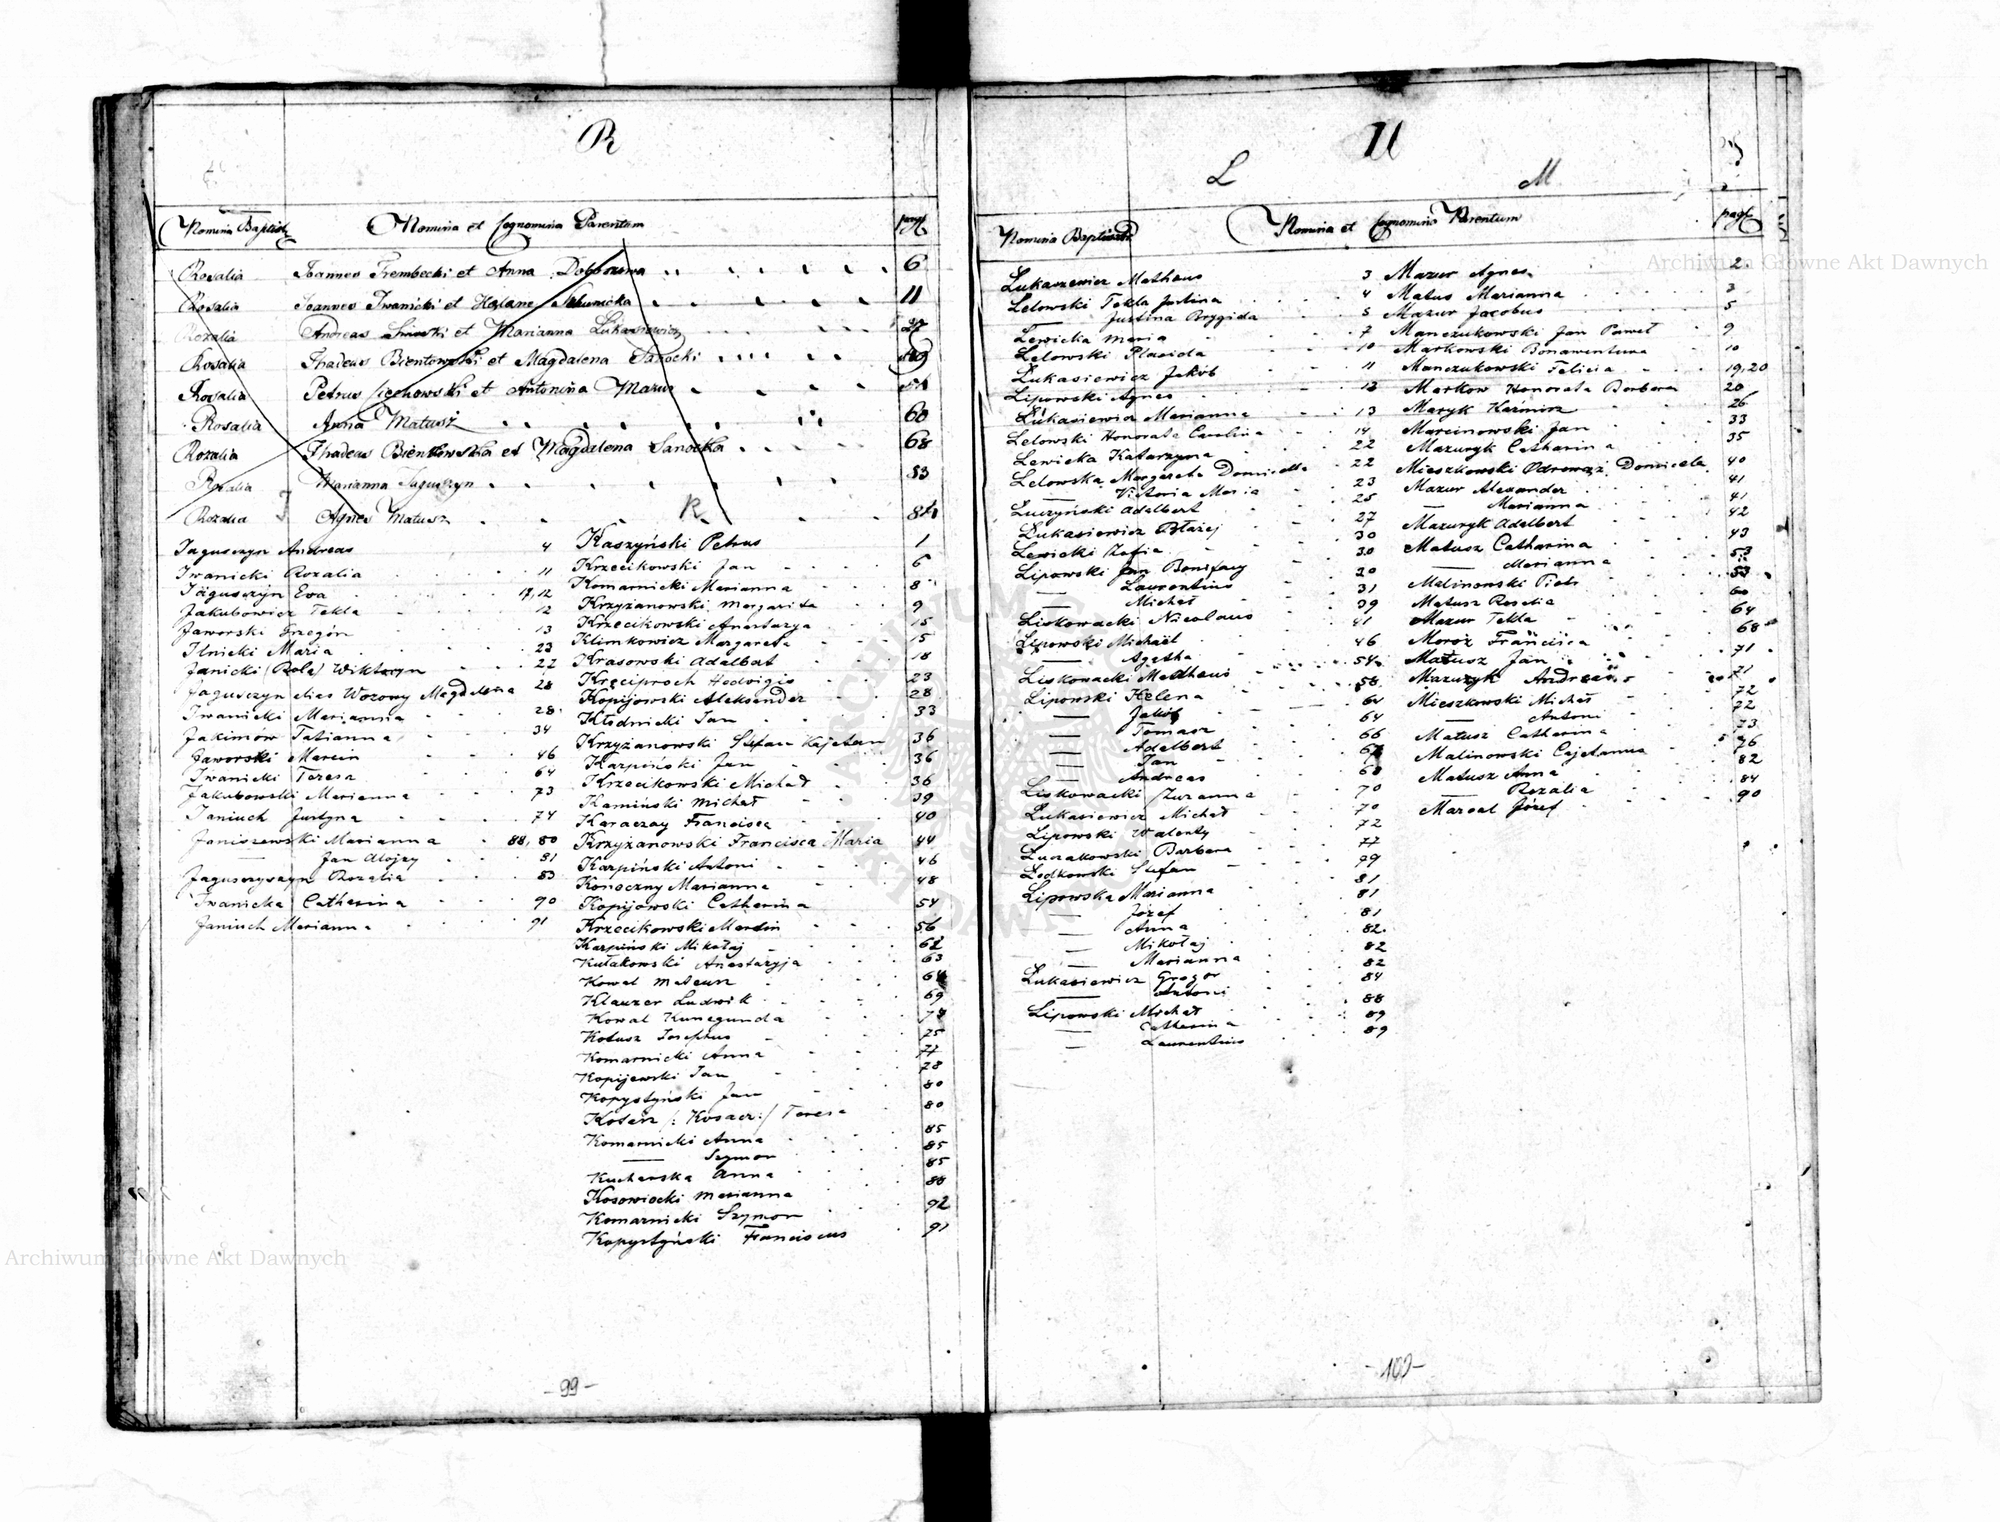 R
Nomina Baptisat
Nomina et Cognomina Parentum
pag
Rosalia Joannes Trembecki et Anna 6
Rosalia Joannes Iwanicki et Helane 11
Rozalia Andreas et Marianna Lukasiewicz 27
Rosalia Thadeus Bientowski et Magdalena Sanocki 49
Rosalia Petrus Ciechowski et Antonina Mazur
Rosalia Anna Matusz 60
Rozalia Thadeus Bienkowska et Magdalena Sanocka 68
Rozalia Marianna Jaguszyn 83
Rozalia Agnes Matusz 84
J
K
Jaguszyn Andreas 4
Iwanicki Rozalia 11
Jaguszyn Eva 12
Jakubowicz Tekla 12
Jaworski Grzegórz 13
Ilnicki Maria 23
Janicki (Rola) Wiktoryn 22
Jaguszyn alias Wozowy Magdalena 28
Iwanicki Marianna 28
Jakimow Tatianna 34
Jaworski Marcin 46
Iwanicki Teresa 64
Jakubowski Marianna 73
Janiuch Justyna 74
Janiszewski Marianna 80
Jan Alojzy 81
Jaguszyszyn Rozalia 83
Iwanicka Catherina 90
Janiuch Marianna 91
Kaszyński Petrus 1
Krzecikowski Jan 6
Komarnicki Marianna 8
Krzyżanowski Margarita 9
Krzecikowski Anastazya 15
Klimkowicz Margareta 15
Krasowski Adalbert 18
Kreciproch Hedvigis 23
Kopijowski Aleksander 28
Kłodnicki Jan 33
Krzyżanowski Stefan Kajetan 36
Karpiński Jan 36
Krzecikowski Michał 36
Kamiński Michał 39
Karaczay Francisca 40
Krzyżanowski Francisca Maria 44
Karpiński Antoni 46
Konoczny Marianna 48
Kopijowski Catherina 54
Krzecikowski Marcin 56
Karpiński Mikołaj 62
Kułakowski Anastazyja 63
Kowal Mateusz 64
Klauzer Ludwik 69
Kowal Kunegunda 74
Kotusz Josephus 75
Komarnicki Anna 77
Kopijewski Jan 78
Kopystyński Jan 80
Teresa 80
Komarnicki Anna 85
Szymon 85
Kucharska Anna 85
Kosowiecki Marianna 88
Komarnicki Szymon 92
Kopystyński Franciscus 91
- 99 -
L
M
Nomina Baptisat
Nomina et Cognomina Parentum
pag
Łukaszewicz Matheus 3
Lelowski Tekla Justina 4
Justina Brygida 5
Lewicka Maria 7
Lelowski Placida 10
Łukasiewicz Jakób 11
Lipowski Agnes 12
Łukasiewicz Marianna 13
Lelowski Honorata Carolina 14
Lewicka Katarzyna 22
Lelowska Margareta Domicella 22
Victoria Maria 23
Łuczyński Adalbert 25
Łukasiewicz Błażej 27
Lewicki Zofia 30
Lipowski Jan Bonifacy 30
Laurentius 30
Michał 31
Liskowacki Nicolaus 39
Lipowski Michał 41
Agatha 46
Liskowacki Matheus 54
Lipowski Helena 58
Jakób 64
Tomasz 64
Adalbert 66
Jan 67
Andreas 68
Liskowacki Zuzanna 70
Łukasiewicz Michał 70
Lipowski Walenty 72
Łuczakowski Barbara 77
Ledkowski Stefan 79
Lipowska Marianna 81
Józef 81
Anna 81
Mikołaj 82
Marianna 82
Łukasiewicz Gregor 82
Antoni 84
Lipowski Michał 88
Catherina 89
Laurentius 89
Mazur Agnes 2
Matus Marianna 3
Mazur Jacobus 5
Manczukowski Jan Paweł 9
Markowski Bonawentura 10
Manczukowski Felicia 19,20
Markow Honorata Barbara 20
Maryk Kazimirz 26
Marcinowski Jan 33
Mazuryk Catharina 35
Mieszkowski Odrowąż Domicela 40
Mazur Alexander 41
Marianna 41
Mazuryk Adalbert 42
Matusz Catharina 43
Marianna 53
Malinowski Piotr 53
Matusz Rosalia 60
Mazur Tekla 64
Moroz Francisca 68
Matusz Jan 71
Mazuryk Andreas 71
Mieszkowski Michał 72
Antoni 72
Matusz Catherina 73
Malinowski Cajetanna 76
Matusz Anna 82
Rozalia 84
Marcal Józef 90
- 100 -
Archiwum Główne Akt Dawnych
Archiwum Główne Akt Dawnych